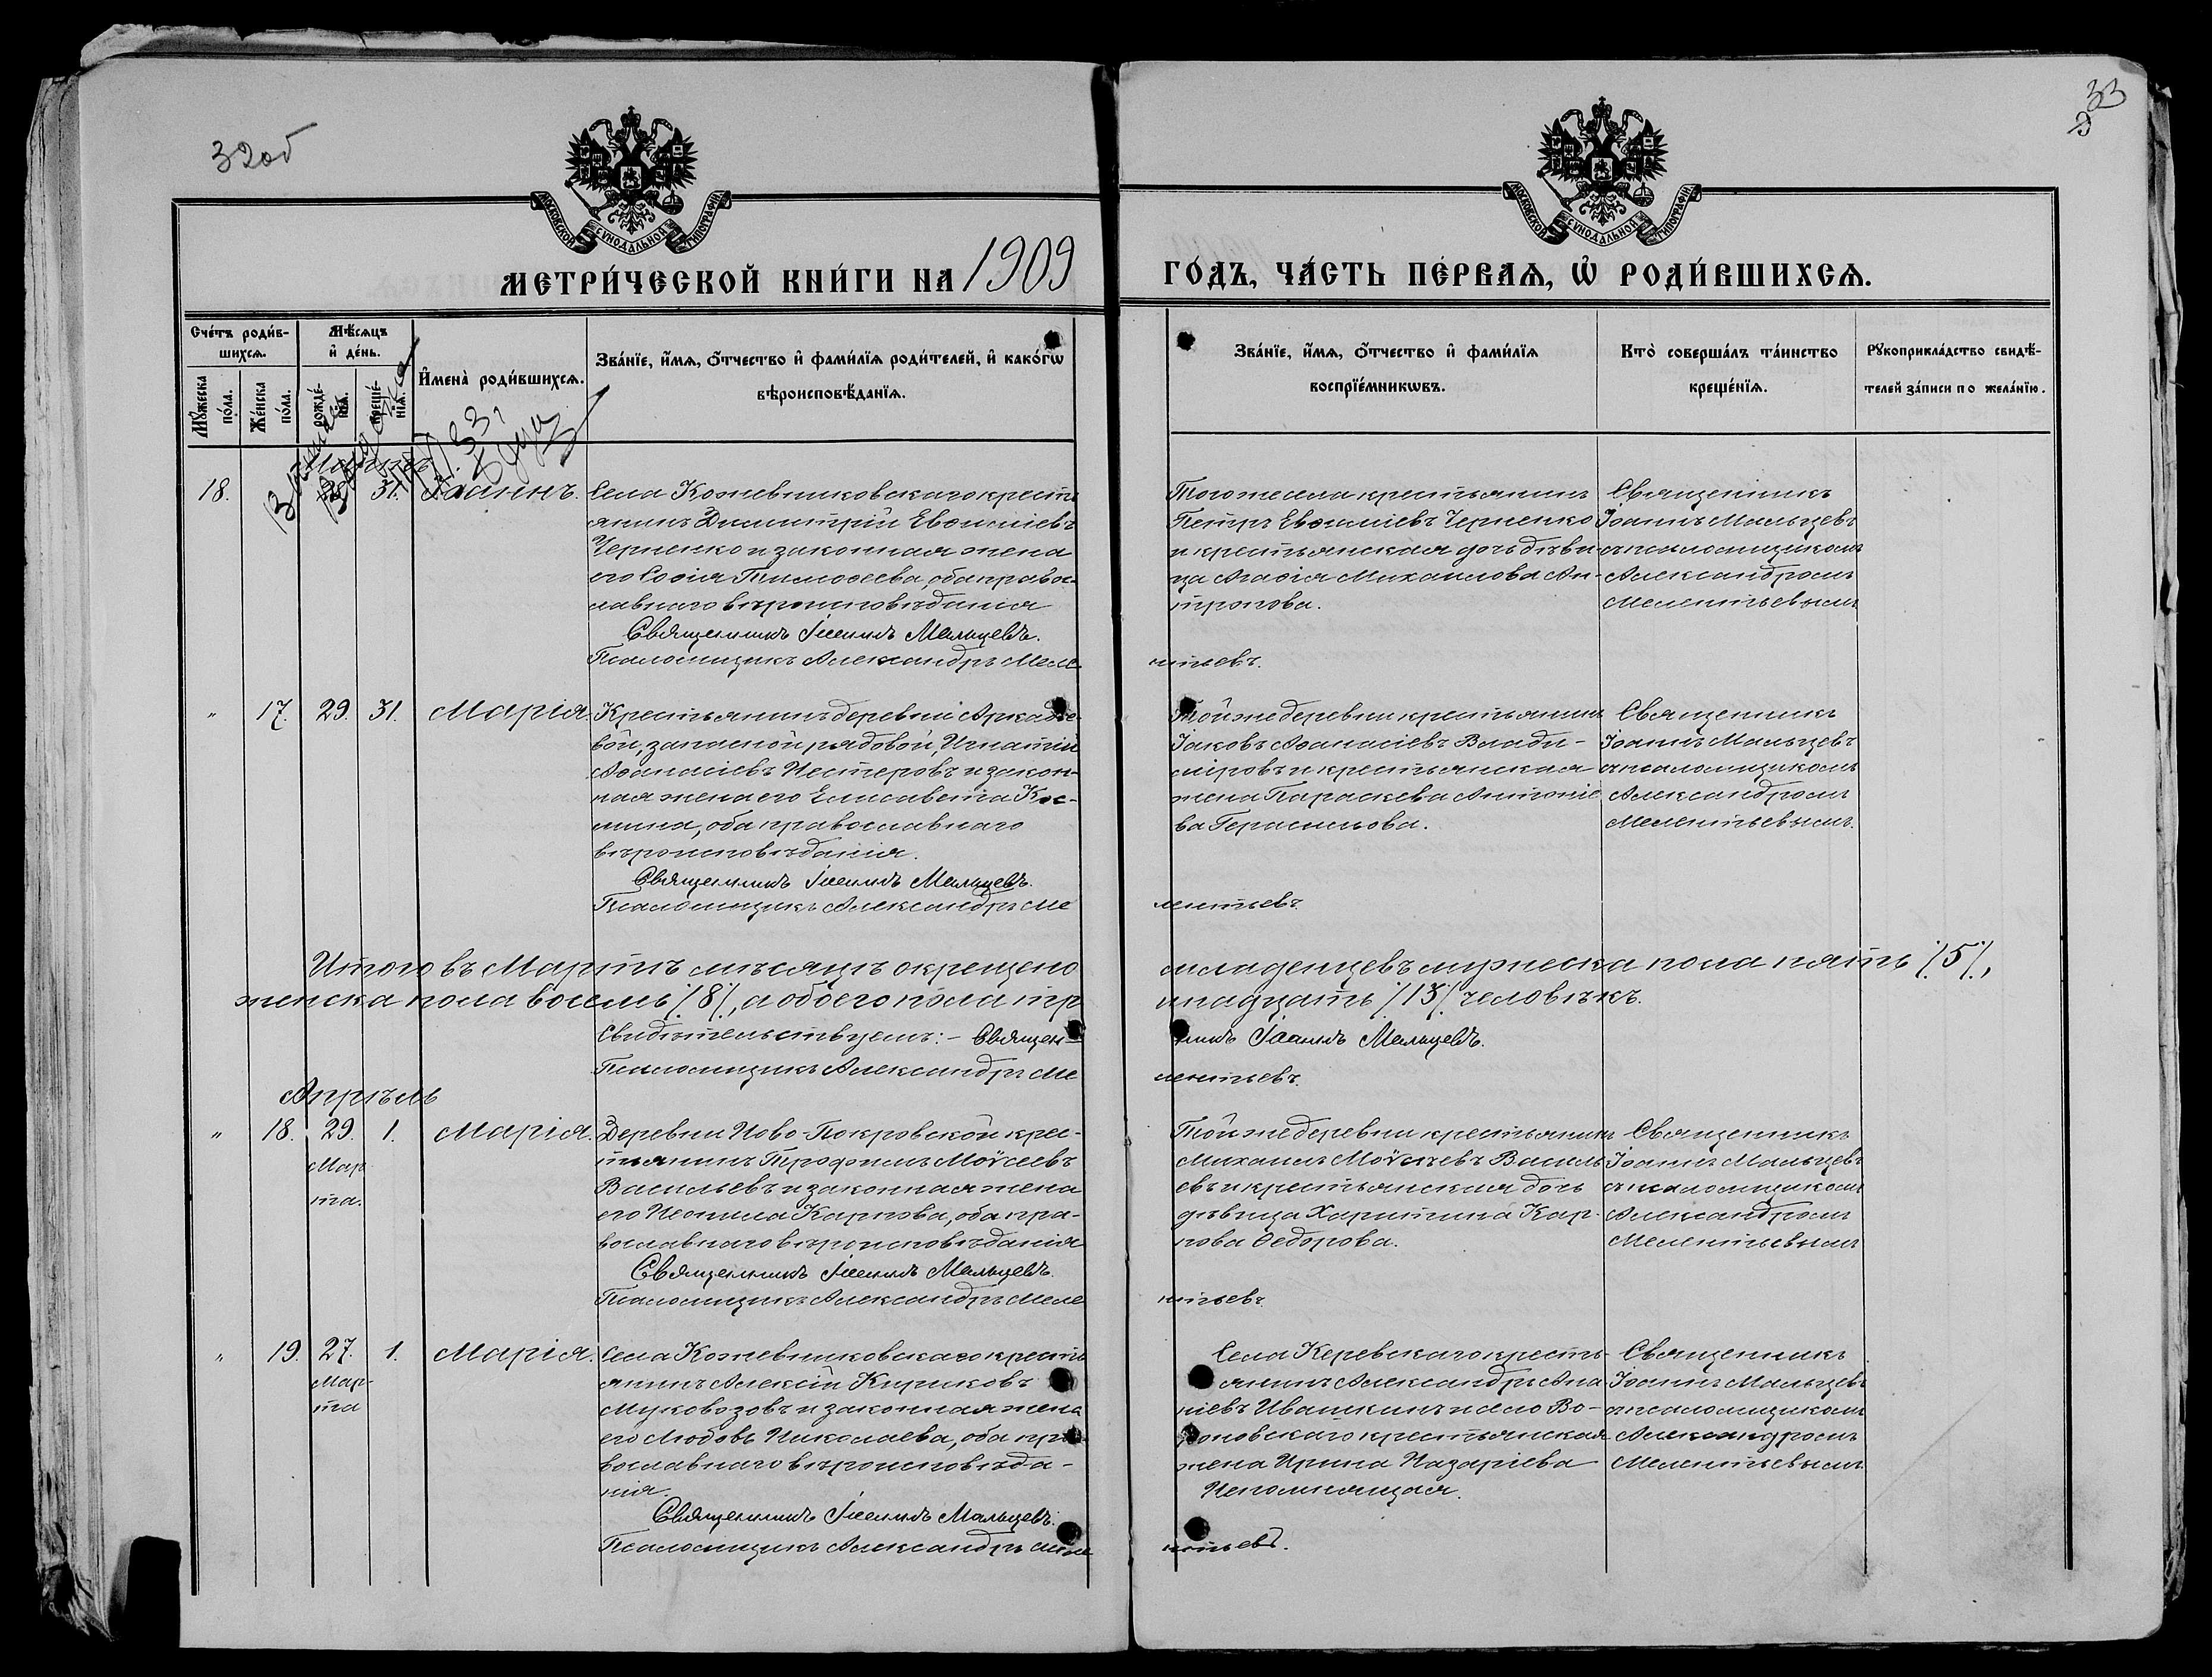 32об
33
МОСКОВСКОЙ СУНОДАЛЬНОЙ ТИПОГРАФІИ
МОСКОВСКОЙ СУНОДАЛЬНОЙ ТИПОГРАФІИ
МЕТРИ́ЧЕСКОЙ КНИ́ГИ НА 1909
ГО́ДЪ, ЧА́СТЬ ПЕ́РВАѦ, Ѡ҆ РОДИ́ВШИХСѦ.
Сче́тъ роди́в-
шихсѧ.
Мꙋ́жеска по́ла.
Же́нска по́ла.
Мѣ́сѧцъ
и҆ де́нь.
рожде́-
нїѧ.
креще́-
нїѧ.
И҆мена̀ роди́вшихсѧ.
Зва́нїе, и҆́мѧ, ѻ҆́тчество и҆ фами́лїѧ роди́телей, и҆ како́гѡ
вѣроисповѣ́данїѧ.
Зва́нїе, и҆́мѧ, ѻ҆́тчество и҆ фами́лїѧ
воспрїе́мникѡвъ.
Кто̀ соверша́лъ та́инство
креще́нїѧ.
Рꙋкоприкла́дство свидѣ́-
телей за́писи по жела́нїю.
Мартъ
18.
31.
Іоаннъ.
Села Кожевниковскаго кресть
янинъ Димитрій Евфиміевъ
Черненко и законная жена
его Софія Тимофеева, оба правос-
лавнаго вѣроисповѣданія
Священникъ Іоаннъ Мальцевъ.
Псаломщикъ Александръ Меле
нтьевъ.
Того же села крестьянинъ
Петръ Евфиміевъ Черненко
и крестьянская дочь дѣви-
ца Агафія Михаилова Ан-
тропова.
Священникъ
Іоаннъ Мальцевъ
съ псаломщикомъ
Александромъ
Мелентьевымъ
" 17. 29. 31. Марія.
Крестьянинъ деревни Аркадіе-
вой, запасной рядовой, Игнатій
Афанасіевъ Нестеровъ и закон-
ная жена его Елисавета Кос-
мина, оба православнаго
вѣроисповѣданія.
Священникъ Іоаннъ Мальцевъ.
Псаломщикъ Александръ Ме
лентьевъ
Той же деревни крестьянинъ
Іаковъ Афанасіевъ Влади-
міровъ и крестьянская
жена Параскева Антоніе
ва Герасимова.
Священникъ
Іоаннъ Мальцевъ
съ псаломщикомъ
Александромъ
Мелентьевымъ.
Итого въ Мартѣ мѣсяцѣ окрещено младенцевъ мужеска пола пять /5/,
женска пола восемь /8/, а обоего пола тринадцать /13/ человѣкъ.
Свидѣтельствуемъ: – Священникъ Іоаннъ Мальцевъ.
Псаломщикъ Александръ Мелентьевъ.
Апрѣль
" 18. 29. 1. Марія.
Мар
та.
Деревни Ново-Покровской крес-
тьянинъ Ферофонтъ Моѵсеевъ
Васильевъ и законная жена
его Неонила Карпова, оба пра-
вославнаго вѣроисповѣданія
Священникъ Іоаннъ Мальцевъ.
Псаломщикъ Александръ Меле
нтьевъ
Той же деревни крестьянинъ
Михаилъ Моѵсеевъ Василь
евъ и крестьянская дочь
дѣвица Харитина Кар-
пова Ѳедорова.
Священникъ
Іоаннъ Мальцевъ
съ псаломщикомъ
Александромъ
Мелентьевымъ
" 19. 27. 1. Марія.
Мар-
та
Села Кожевниковскаго кресть
янинъ Алексій Кириковъ
Муковозовъ и законная жена
его Любовь Николаева, оба пра-
вославнаго вѣроисповѣда-
нія.
Священникъ Іоаннъ Мальцевъ.
Псаломщикъ Александръ Меле
нтьевъ.
Села Керевскаго кресть-
янинъ Александръ Ана
ніевъ Ивашкинъ и село Во-
роновскаго крестьянская
жена Ирина Назаріева
Непомнящая.
Священникъ
Іоаннъ Мальцевъ
съ псаломщикомъ
Александромъ
Мелентьевымъ